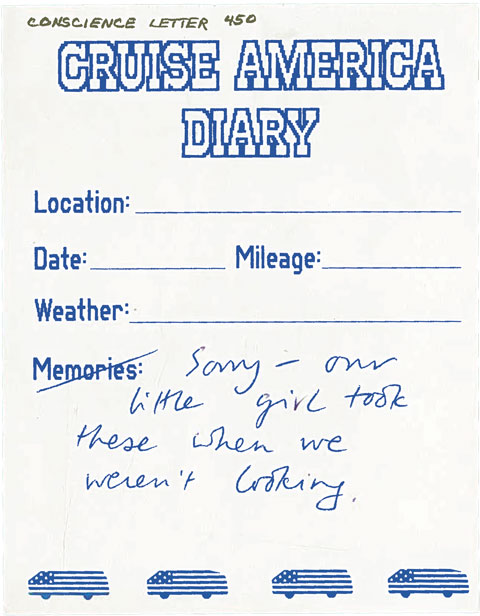 CONSCIENCE LETTER 450
CRUISE AMERICA
DIARY
Location:
Date: Mileage:
Weather:
Memories: Sorry – our
little girl took
these when we
weren't looking.